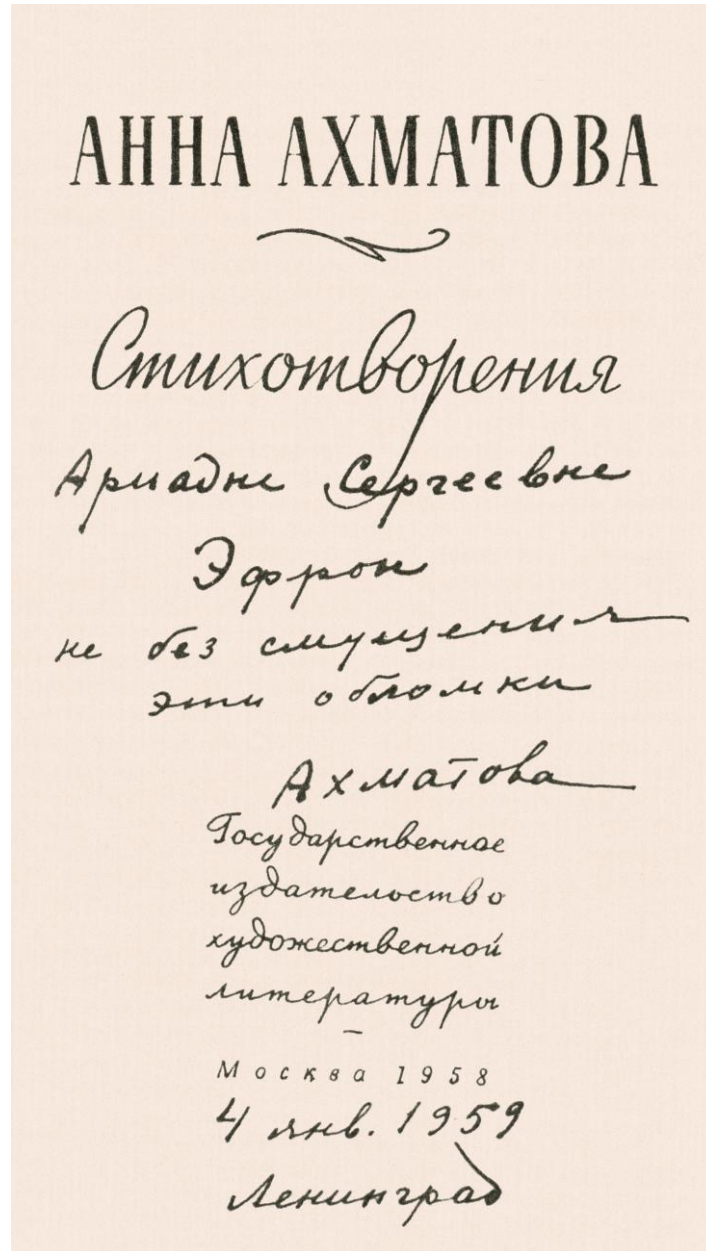 АННА АХМАТОВА
Стихотворения
Ариадне Сергеевне
Эфрон
не без смущения
эти обломки
Ахматова
Государственное
издательство
художественной
литературы
—
Москва 1958
4 янв. 1959
Ленинград